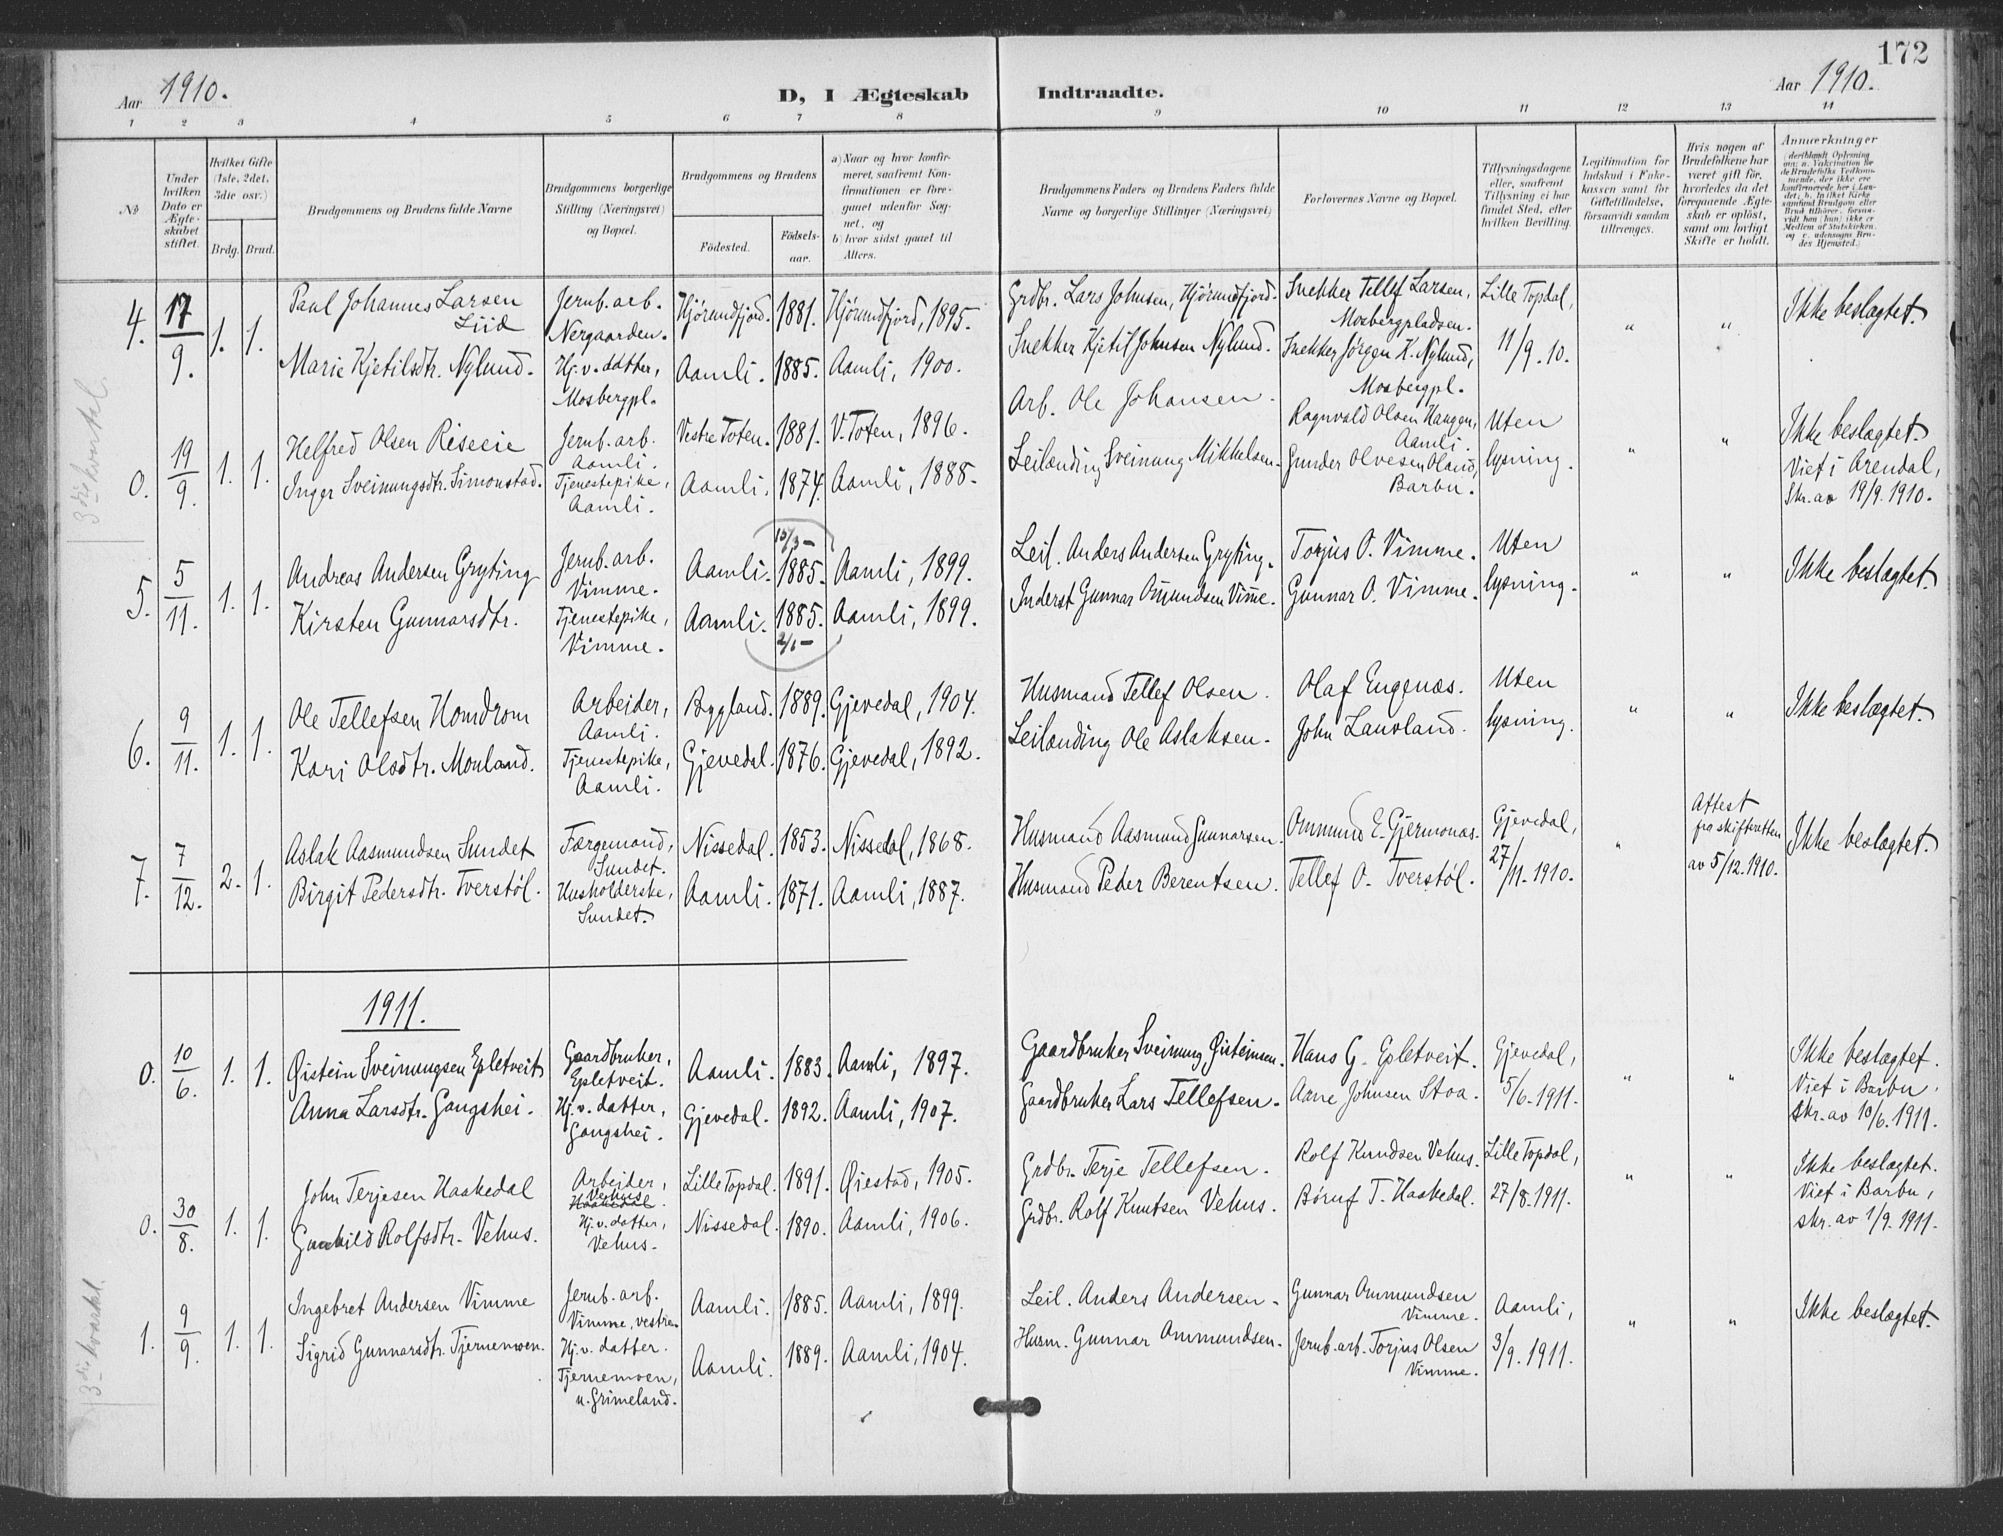 172
Aar 1910. D, I Ægteskab Indtraadte. Aar 1910.
1 2 3 4 5 6 7 8 9 10 11 12 13 14
No
Under hvilken Dato er Ægteskabet stiftet.
Hvilket Gifte (1ste, 2det, 3die osv.)
Brdg. Brud.
Brudgommens og Brudens fulde Navne
Brudgommens borgerlige Stilling (Næringsvei) og Bopæl.
Brudgommens og Brudens
Födested. Födselsaar.
a) Naar og hvor konfirmeret, saafremt Konfirmationen er foregaaet udenfor Sognet, og
b) hvor sidst gaaet til Alters.
Brudgommens Faders og Brudens Faders fulde Navne og borgerlige Stillinger (Næringsvei)
Forlovernes Navne og Bopæl.
Tillysningsdagene eller, saafremt Tillysning ei har fundet Sted, efter hvilken Bevilling.
Legitimation for Indskud i Enkekassen samt for Giftetilladelse, forsaavidt saadan tiltrænges.
Hvis nogen af Brudefolkene har været gift för, hvorledes da det foregaaende Ægteskab er oplöst, samt om lovligt Skifte er holdt.
Anmærkninger
3die kvartal.
4. 17/9. 1. 1.
Paul Johannes Larsen Liid
Jernb.arb. Nergaarden.
Hjørundfjord. 1881. Hjørundfjord, 1895.
Grdbr. Lars Johnsen, Hjørundfjord.
Snekker Tellef Larsen, Mosbergpladsen.
Lille Topdal, 11/9.10.
" "
Ikke beslægtet.
Marie Kjetilsdtr. Nylund.
Hj.v. datter, Mosbergpl.
Aamli. 1885. Aamli, 1900.
Snekker Kjetil Johnsen Nylund.
Snekker Jørgen K. Nylund, Mosbergpl.
0. 19/9. 1. 1.
Helfred Olsen
Jernb.arb. Aamli.
Vestre Toten. 1881. V. Toten, 1896.
Arb. Ole Johansen.
Ragnvald Olsen Haugen, Aamli.
Uten lysning.
" "
Ikke beslægtet.
Viet i Arendal,
Skr. av 19/9.1910.
Inger Sveinungsdtr. Simonstad.
Tjenestepike, Aamli.
Aamli, 1874. Aamli, 1888.
Leilænding Sveinung Mikkelsen.
Gunder Olvesen Øland, Barbu.
5. 5/11. 1. 1.
Andreas Andersen Gryting
Jernb.arb. Vimme.
Aamli. 15/3 - 1885. Aamli, 1899.
Leil. Anders Andersen Gryting.
Torjus O. Vimme.
Uten lysning.
" "
Ikke beslægtet.
Kirsten Gunnarsdtr.
Tjenestepike, Vimme.
Aamli. 1885. 2/1 - Aamli, 1899.
Inderst Gunnar Omundsen Vimme.
Gunnar O. Vimme.
6. 9/11. 1. 1.
Ole Tellefsen Homdrom
Arbeider, Aamli.
Bygland. 1889. Gjevedal, 1904.
Husmand Tellef Olsen.
Olaf Engenæs.
Uten lysning.
" "
Ikke beslægtet.
Kari Olsdtr. Mouland.
Tjenestepike, Aamli.
Gjevedal. 1876. Gjevedal, 1892.
Leilænding Ole Aslaksen.
John Lauvland.
7. 7/12. 2. 1.
Aslak Aasmundsen Sundet
Færgemand, Sundet.
Nissedal. 1853. Nissedal, 1868.
Husmand Aasmund Gunnarsen.
Ommund E. Gjermonæs.
Gjevedal, 27/11.1910.
"
Attest fra skifteretten av 5/12.1910.
Ikke beslægtet.
Birgit Pedersdtr. Tverstøl.
Husholderske, Sundet.
Aamli. 1871. Aamli, 1887.
Husmand Peder Berentsen.
Tellef O. Tverstøl.
1911.
0. 10/6. 1. 1.
Øistein Sveinungsen Epletveit
Gaardbruker, Epletveit.
Aamli. 1883. Aamli, 1897.
Gaardbruker Sveinung Øisteinsen.
Hans G. Epletveit.
Gjevedal, 5/6.1911.
" "
Ikke beslægtet.
Viet i Barbu,
skr. av 10/6.1911.
Anna Larsdtr. Gangshei.
Hj.v. datter, Gangshei.
Gjevedal. 1892. Aamli, 1907.
Gaardbruker Lars Tellefsen.
Aane Johnsen Stoa.
0. 30/8. 1. 1.
John Terjesen Haakedal
Arbeider, Vehus Haakedal.
Lille Topdal. 1891. Øiestad, 1905.
Grdbr. Terje Tellefsen.
Rolf Knudsen Vehus.
Lille Topdal, 27/8.1911.
" "
Ikke beslægtet.
Viet i Barbu,
skr. av 1/9.1911.
Gunhild Rolfsdtr. Vehus.
Hj.v. datter, Vehus.
Nissedal. 1890. Aamli, 1906.
Grdbr. Rolf Knutsen Vehus.
Børuf T. Haakedal.
3die kvartal.
1. 9/9. 1. 1.
Ingebret Andersen Vimme
Jernb.arb. Vimme, vestre.
Aamli. 1885. Aamli, 1899.
Leil. Anders Andersen.
Gunnar Ommundsen Vimme.
Aamli, 3/9.1911.
" "
Ikke beslægtet.
Sigrid Gunnarsdtr. Tjernemoen.
Hj.v. datter. Tjernemoen, u. Grimeland.
Aamli. 1889. Aamli, 1904.
Husm. Gunnar Ommundsen.
Jernb.arb. Torjus Olsen Vimme.